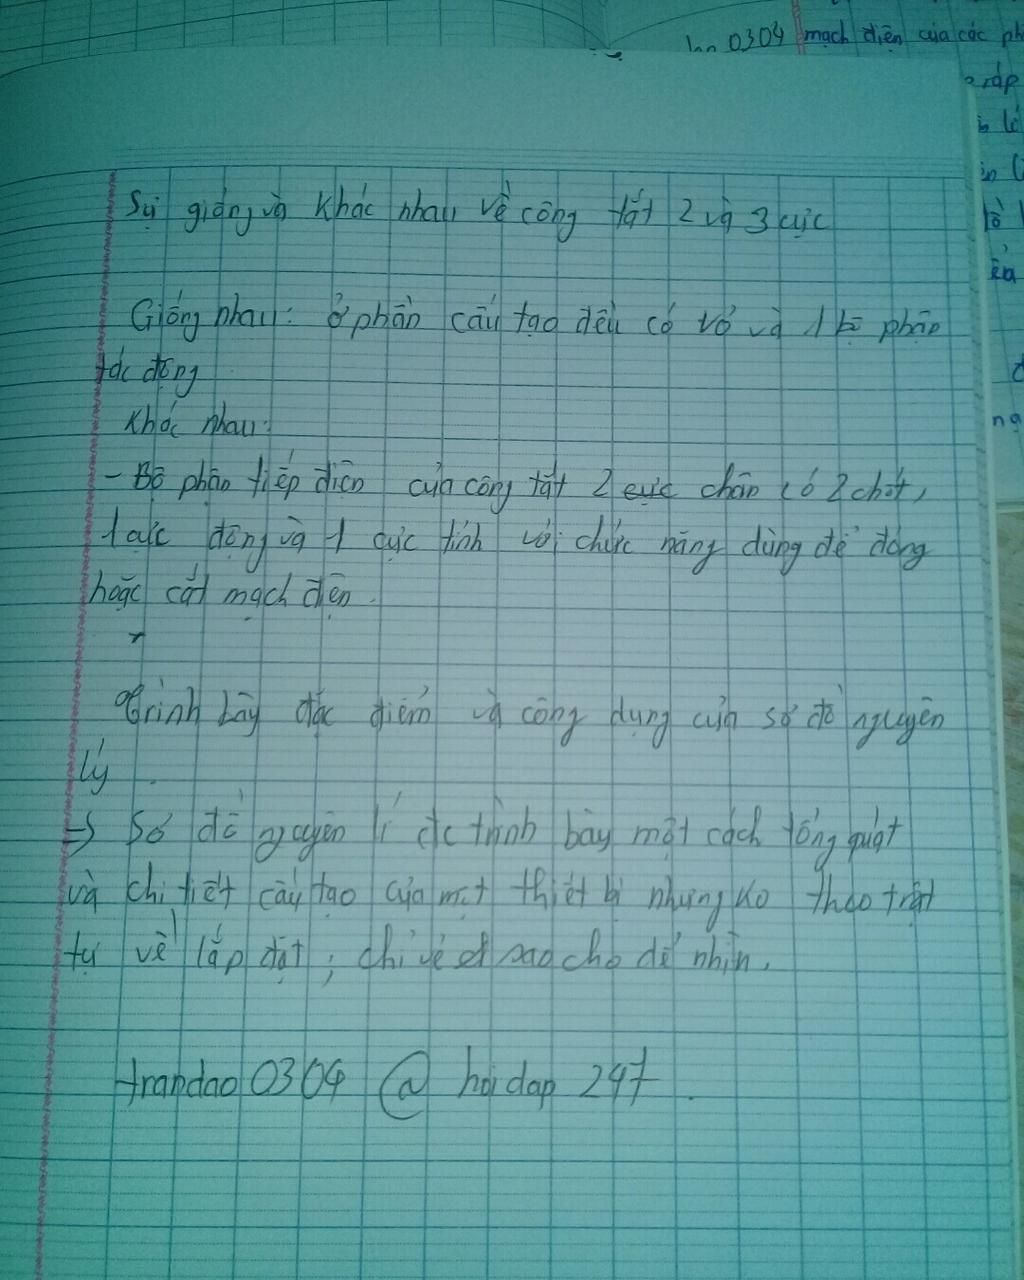 lan 0304 mạch điện của các ph
ráp
Sự giống và khác nhau về công tắt 2 và 3 cực
Giống nhau: ở phần cấu tạo đều có vỏ và 1 bộ phận
tác động
Khác nhau:
- Bộ phận tiếp điện của công tắt 2 cực chân có 2 chốt,
1 cực động và 1 cực tĩnh với chức năng dùng để đóng
hoặc cắt mạch điện.
Trình bày đặc điểm và công dụng của sơ đồ nguyên
lý.
→ Sơ đồ nguyên lí đc trình bày một cách tổng quát
và chi tiết cấu tạo của một thiết bị nhưng ko theo trật
tự về lắp đặt; chỉ vẽ sao cho dễ nhìn.
trandao0304 @ hoidap 247.